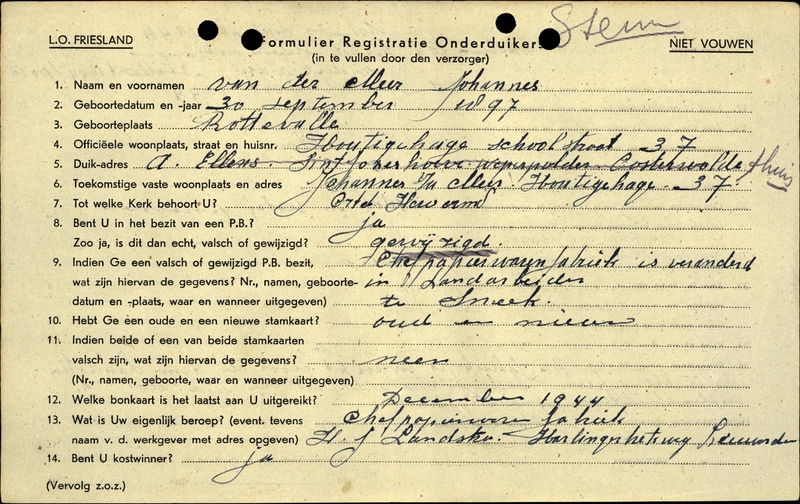 L.O. FRIESLAND
Formulier Registratie Onderduikers
Stem
NIET VOUWEN
(in te vullen door den verzorger)
1. Naam en voornamen van der Meer Johannes
2. Geboortedatum en -jaar 30 september 1897
3. Geboorteplaats Rottevalle
4. Officiëele woonplaats, straat en huisnr. Houtigehage schoolstraat 37
5. Duik-adres A. Ellens Oosterwolde thuis
6. Toekomstige vaste woonplaats en adres Johannes v/d Meer Houtigehage 37
7. Tot welke Kerk behoort U?
8. Bent U in het bezit van een P.B.? ja
Zoo ja, is dit dan echt, valsch of gewijzigd? gewijzigd.
9. Indien Ge een valsch of gewijzigd P.B. bezit, Chef papierwarenfabriek is veranderd
wat zijn hiervan de gegevens? Nr., namen, geboorte- in Landarbeider
datum en -plaats, waar en wanneer uitgegeven) te Sneek.
10. Hebt Ge een oude en een nieuwe stamkaart? oud en nieuw
11. Indien beide of een van beide stamkaarten
valsch zijn, wat zijn hiervan de gegevens? neen
(Nr., namen, geboorte, waar en wanneer uitgegeven)
12. Welke bonkaart is het laatst aan U uitgereikt? December 1944
13. Wat is Uw eigenlijk beroep? (event. tevens Chef papierwaren fabriek
naam v. d. werkgever met adres opgeven) H. J. Landstra. Harlingerstraatweg Leeuwarden
14. Bent U kostwinner? ja
(Vervolg z.o.z.)